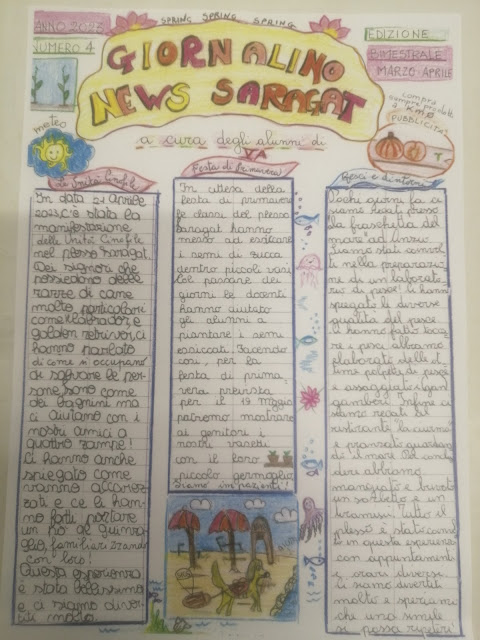 SPRING SPRING SPRING
ANNO 2023
NUMERO 4
GIORNALINO
NEWS SARAGAT
EDIZIONE
BIMESTRALE
MARZO-APRILE
meteo
compra
sempre prodotti
a KM 0
PUBBLICITÀ
a cura degli alunni di
Le Unità Cinofile
In data 21 Aprile
2023, c'è stata la
manifestazione
delle Unità Cinofile
nel plesso Saragat.
Dei signori che
possiedono delle
razze di cane
molto particolari
come il labrador, e
golden retriever, ci
hanno parlato
di come si occupano
di salvare le per-
sone. Sono come
dei bagnini ma
ci aiutano con i
nostri amici a
quattro zampe!
Ci hanno anche
spiegato come
vanno accarez-
zati e ce li han-
no fatti portare
un po' al guinza-
glio, familiarizzando
con loro!
Questa esperienza
è stata bellissima
e ci siamo diver-
titi molto.
Festa di primavera
In attesa della
festa di primavera
le classi del plesso
Saragat hanno
messo ad essiccare
i semi di zucca
dentro piccoli vasi
Col passare dei
giorni le docenti
hanno aiutato
gli alunni a
piantare i semi
essiccati. Facendo
così, per la
festa di prima-
vera prevista
per il 19 Maggio
potremo mostrare
ai genitori i
nostri vasetti
con il loro
piccolo germoglio
Siamo impazienti!
Pesci e dintorni
Pochi giorni fa ci
siamo recati presso
"La fraschetta del
mare" ad
Siamo stati coinvol-
ti nella preparazio-
ne di un laborato-
rio di pesce! Ci hanno
spiegato le diverse
qualità del pesce
ci hanno fatto tocca-
re i pesci abbiamo
elaborato delle ot-
time polpette di pesce
e assaggiato i gam-
gamberi. Infine ci
siamo recati al
ristorante
e pranzato guardan-
do il mare. Poi
abbiamo
mangiato e bevuto
un sorbetto e un
tiramisù. Tutto il
plesso è stato coinvol-
to in questa esperienza
con appuntamenti
e orari diversi
ci siamo divertiti
molto e speriamo
che uno simile
si possa ripetere